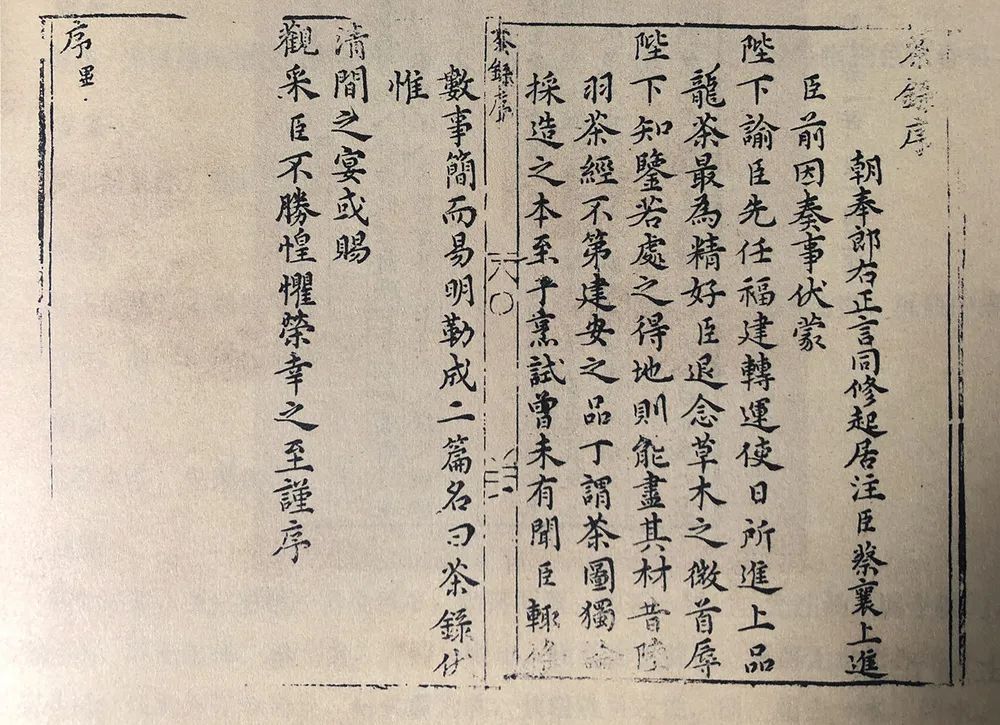 茶錄序
朝奉郎右正言同修起居注臣蔡襄上進
臣前因奏事伏蒙
陛下諭臣先任福建轉運使日所進上品
龍茶最為精好臣退念草木之微首辱
陛下知鑒若處之得地則能盡其材昔陸
羽茶經不第建安之品丁謂茶圖獨論
採造之本至乎烹試曾未有聞臣輒條
茶錄序
數事簡而易明勒成二篇名曰茶錄伏
惟
清間之宴或賜
觀采臣不勝惶懼榮幸之至謹序
序畢